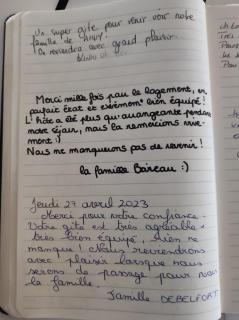 Un super gîte pour venir voir notre
famille de
On reviendra avec grand plaisir.
Merci mille fois pour le logement, en
parfait état et extrêmement bien équipé !
L'hôte a été plus qu'arrangeante pendant
notre séjour, nous la remercions vive-
ment !
Nous ne manquerons pas de revenir !
la famille Baireau :)
Jeudi 27 avril 2023
Merci pour votre confiance.
Votre gîte est très agréable &
très bien équipé, rien ne
manque ! Nous reviendrons
avec plaisir lorsque nous
serons de passage pour voir
la famille.
Famille DEBELFORT